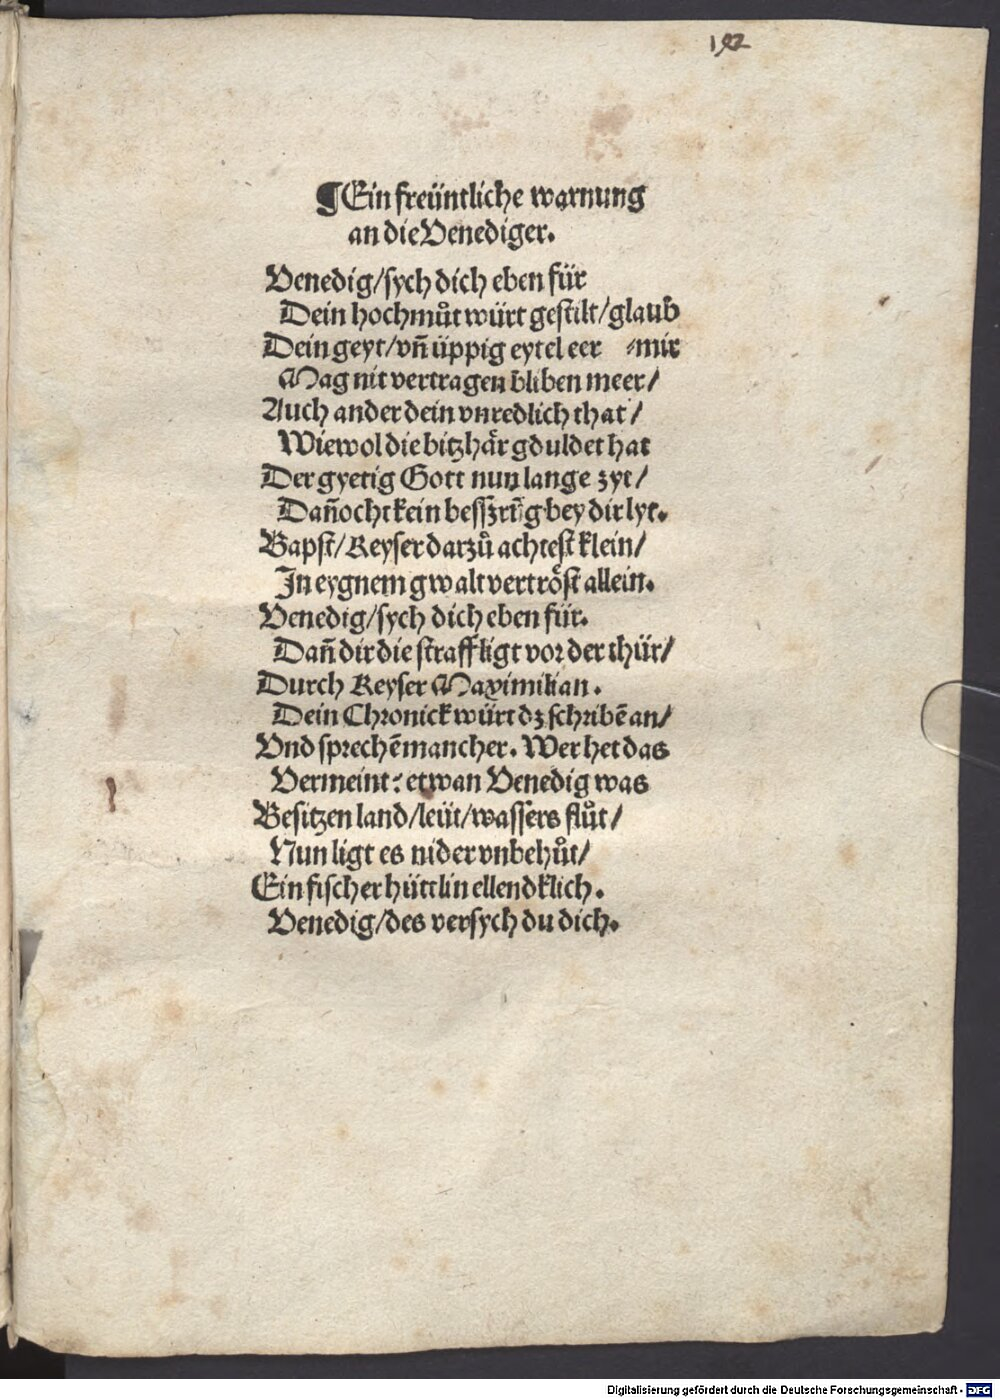 192
¶Ein freüntliche warnung
an die Venediger.
Venedig/sych dich eben für
Dein hochmůt würt gestilt/glaub
Dein geyt/vñ üppig eytel eer ⸗mir
Mag nit vertragen bliben meer/
Auch ander dein vnredlich that/
Wiewol die bitzhär gduldet hat
Der gyetig Gott nun lange zyt/
Dañocht kein besszrũg bey dir lyt.
Bapst/Keyser darzů achtest klein/
In eygnem gwalt vertröst allein.
Venedig/sych dich eben für.
Dañ dir die straff ligt vor der thür/
Durch Keyser Maximilian.
Dein Chronick würt dz schribẽ an/
Vnd sprechẽ mancher. Wer het das
Vermeint: etwan Venedig was
Besitzen land/leüt/wassers flůt/
Nun ligt es nider vnbehůt/
Ein fischer hüttlin ellendklich.
Venedig/des versych du dich.
Digitalisierung gefördert durch die Deutsche Forschungsgemeinschaft - DFG